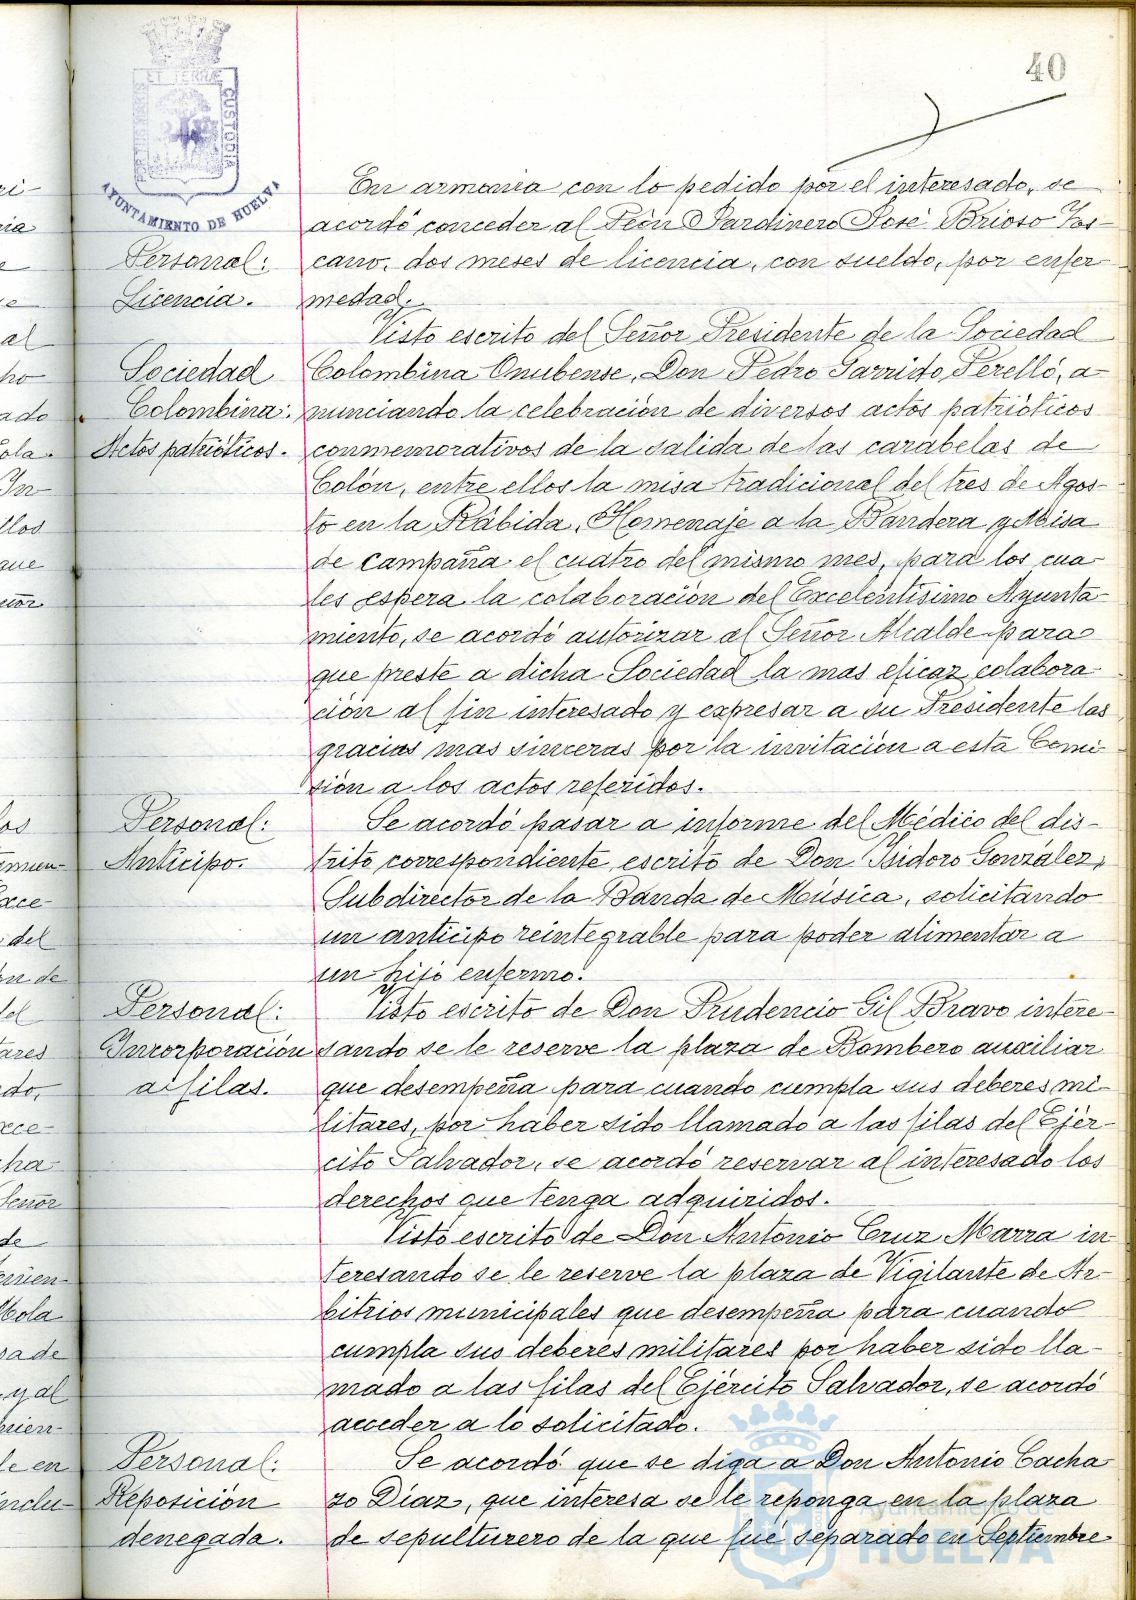 40
PORTUS MARIS
ET TERRÆ
CUSTODIA
AYUNTAMIENTO DE HUELVA
Personal:
Licencia.
En armonia con lo pedido por el interesado, se
acordó conceder al Peón Jardinero José Brioso Tos-
cano, dos meses de licencia, con sueldo, por enfer-
medad.
Sociedad
Colombina:
Actos patrióticos.
Visto escrito del Señor Presidente de la Sociedad
Colombina Onubense, Don Pedro Garrido Perelló, a-
nunciando la celebración de diversos actos patrióticos
conmemorativos de la salida de las carabelas de
Colón, entre ellos la misa tradicional del tres de Agos-
to en la Rábida, Homenaje a la Bandera y Misa
de campaña el cuatro del mismo mes, para los cua-
les espera la colaboración del Excelentísimo Ayunta-
miento, se acordó autorizar al Señor Alcalde para
que preste a dicha Sociedad la mas eficaz colabora-
ción al fin interesado y expresar a su Presidente las
gracias mas sinceras por la invitación a esta Comi-
sión a los actos referidos.
Personal:
Anticipo.
Se acordó pasar a informe del Médico del dis-
trito correspondiente escrito de Don Isidoro González,
Subdirector de la Banda de Música, solicitando
un anticipo reintegrable para poder alimentar a
un hijo enfermo.
Personal:
Incorporación
a filas.
Visto escrito de Don Prudencio Gil Bravo intere-
sando se le reserve la plaza de Bombero auxiliar
que desempeña para cuando cumpla sus deberes mi-
litares, por haber sido llamado a las filas del Ejér-
cito Salvador, se acordó reservar al interesado los
derechos que tenga adquiridos.
Visto escrito de Don Antonio Cruz Marra in-
teresando se le reserve la plaza de Vigilante de Ar-
bitrios municipales que desempeña para cuando
cumpla sus deberes militares por haber sido lla-
mado a las filas del Ejército Salvador, se acordó
acceder a lo solicitado.
Personal:
Reposición
denegada.
Se acordó que se diga a Don Antonio Cacha-
zo Díaz, que interesa se le reponga en la plaza
de sepulturero de la que fué separado en Septiembre
Ayuntamiento de
HUELVA